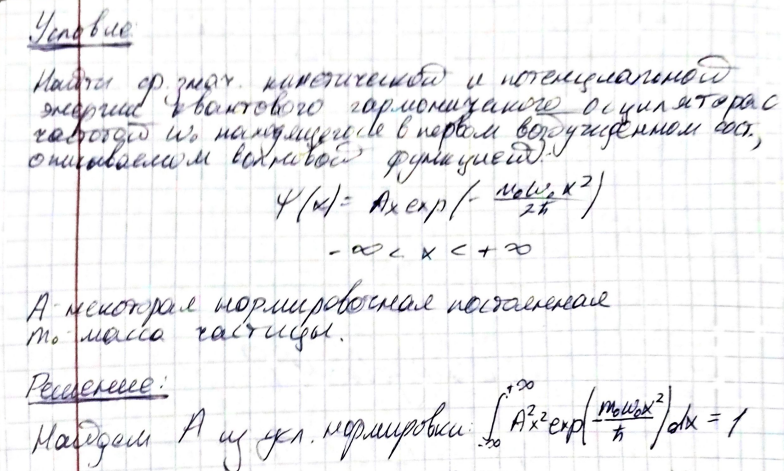 Условие
Найти ср. знач. кинетической и потенциальной
энергии квантового гармонического осцилятора с
частотой ω₀ находящегося в первом возбужденном сост,
описываемом волновой функцией:
Ψ(x) = Ax exp(-m₀ω₀x²/2ħ)
-∞ < x < +∞
A - некоторая нормировочная постоянная
m₀ - масса частицы.
Решение:
Найдем A из усл. нормировки: ∫₋∞⁺∞ A²x² exp(-m₀ω₀x²/ħ)dx = 1